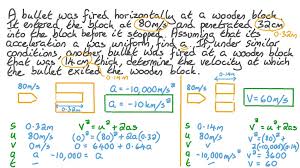 A bullet was fired horizontally at a wooden block.
It entered the block at 80m/s and penetrated 32cm
into the block before it stopped. Assuming that its 0.32m
acceleration a was uniform find a. If, under similar
conditions another bullet was fired at a wooden block
that was 14cm thick, determine the velocity at which
0.14m
the bullet exited the wooden block.
80m/s
0.32m
a = -10,000m/s²
a = -10km/s²
80m/s
0.14m
V = 60m/s
s 0.32m v² = u² + 2as
u 80m/s 0² = (80)² + 2a(0.32)
v 0m/s 0 = 6400 + 0.64a
a -10,000 = a
t
s 0.14m v² = u² + 2as
u 80m/s
v
a -10,000
t